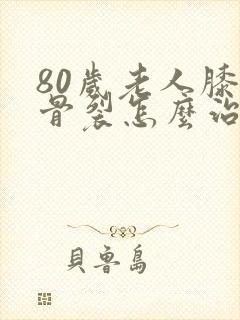 80歲老人膝
骨裂怎麼治
貝魯島